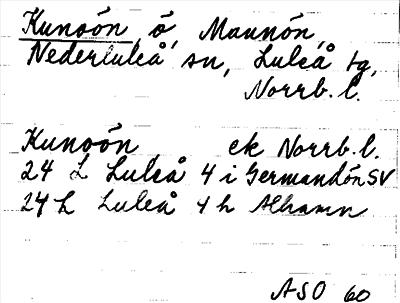 Kunoön, ö, Maunön,
Nederluleå sn, Luleå tg,
Norrb. l.
Kunoön ek Norrb. l.
24 L Luleå 4 i Germandön SV
24 L Luleå 4 h Alhamn
ASO 60